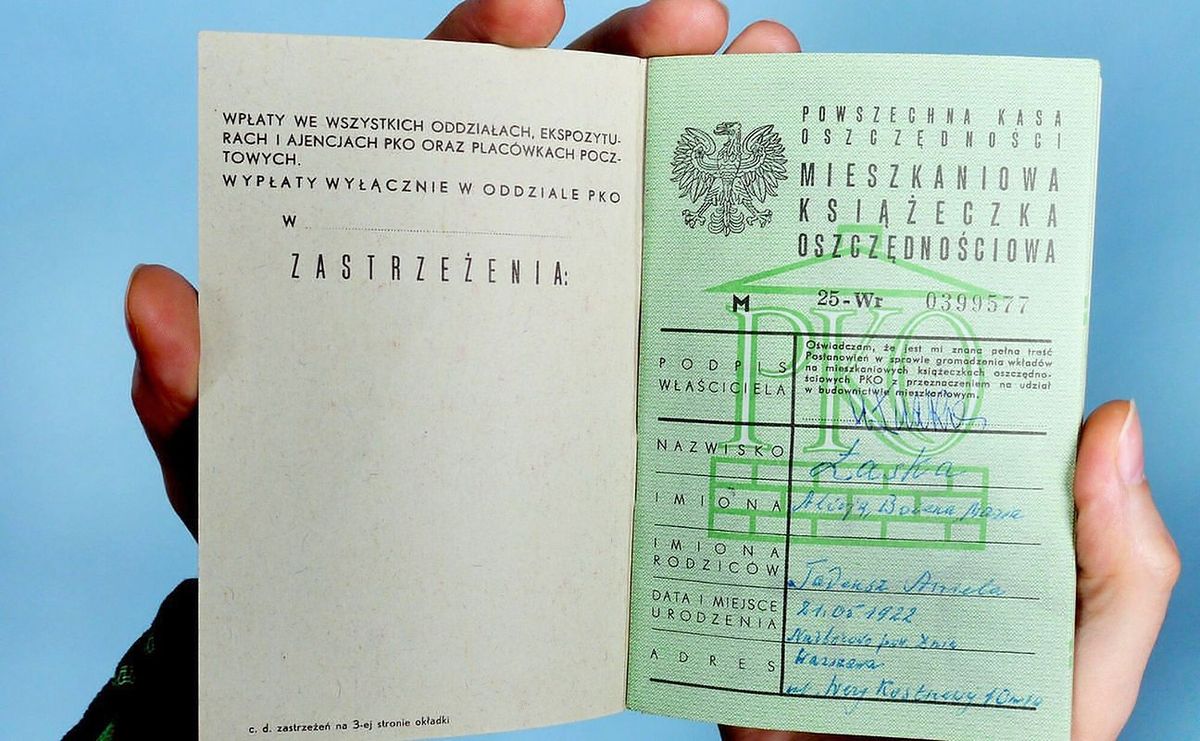 WPŁATY WE WSZYSTKICH ODDZIAŁACH, EKSPOZYTU-
RACH I AJENCJACH PKO ORAZ PLACÓWKACH POCZ-
TOWYCH.
WYPŁATY WYŁĄCZNIE W ODDZIALE PKO
W
ZASTRZEŻENIA:
c. d. zastrzeżeń na 3-ej stronie okładki
POWSZECHNA KASA
OSZCZĘDNOŚCI
MIESZKANIOWA
KSIĄŻECZKA
OSZCZĘDNOŚCIOWA
M 25-Wr 0399577
PKO
PODPIS
WŁAŚCICIELA
Oświadczam, że jest mi znana pełna treść
Postanowień w sprawie gromadzenia wkładów
na mieszkaniowych książeczkach oszczędno-
ściowych PKO z przeznaczeniem na udział
w budownictwie mieszkaniowym.
NAZWISKO Łaska
IMIONA Alicja, Bożena Maria
IMIONA
RODZICÓW Tadeusz Aniela
DATA I MIEJSCE
URODZENIA 21.05 1922
ADRES Warszawa
ul.